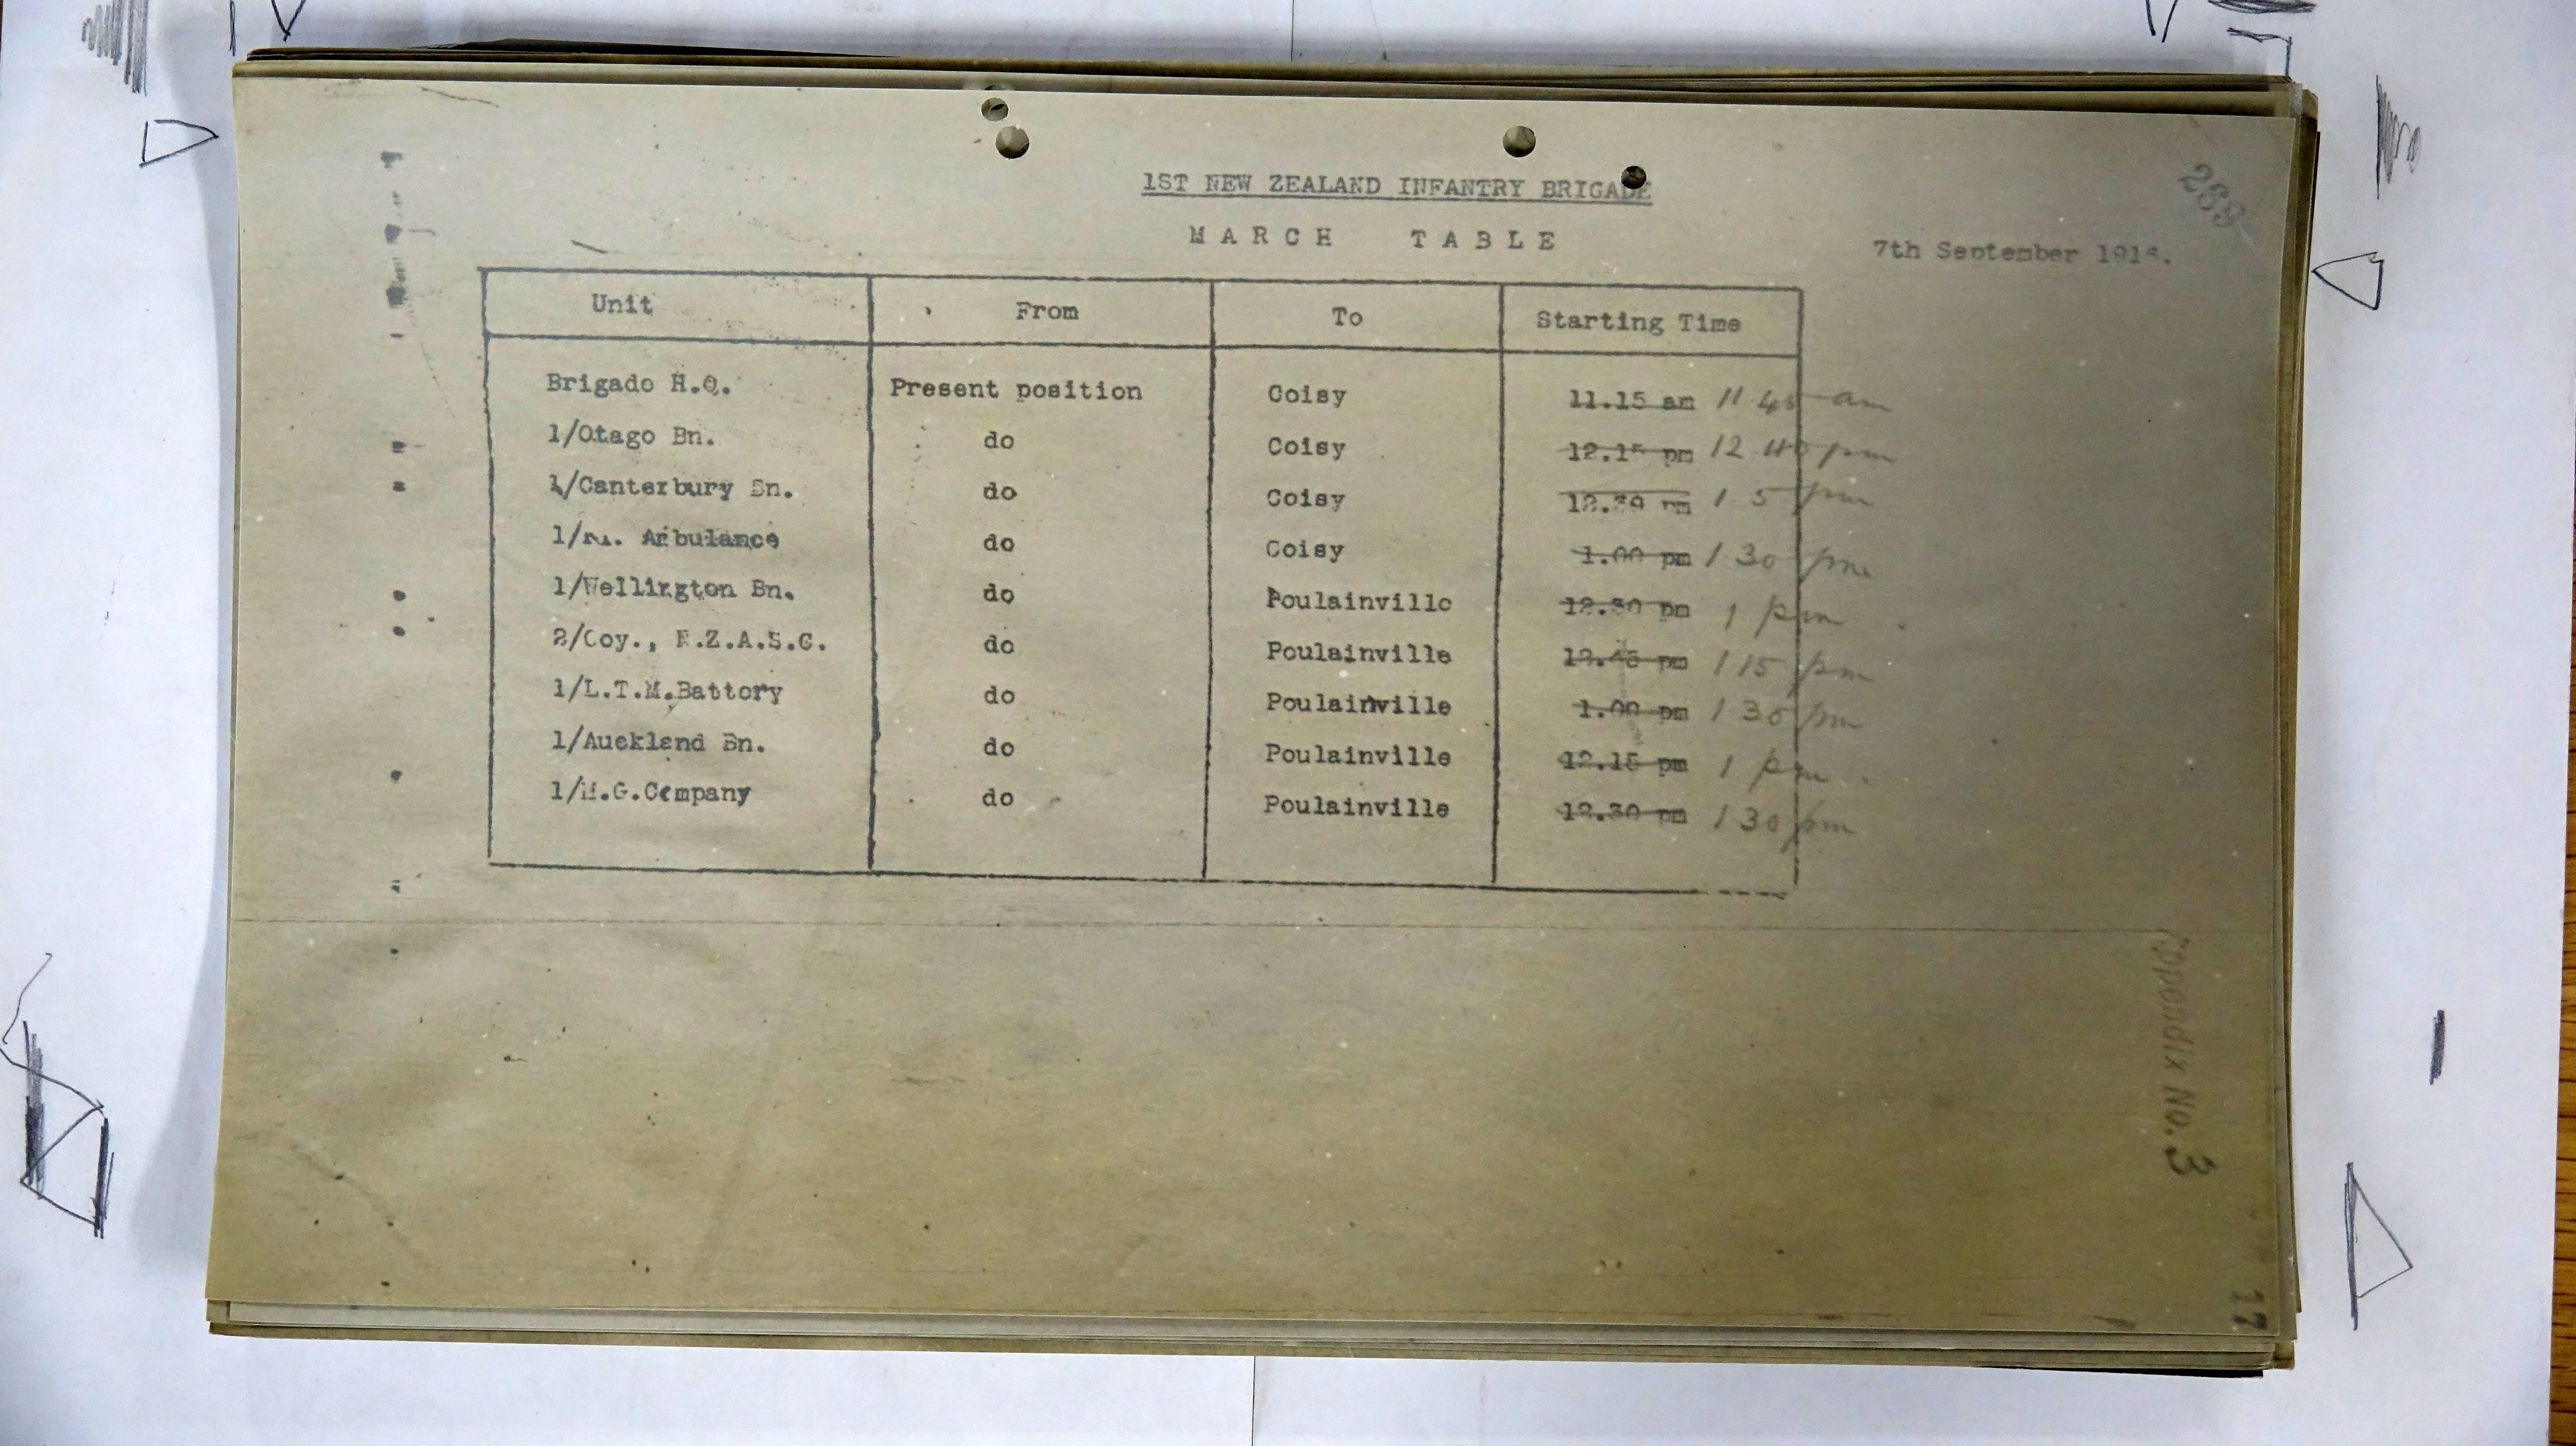 269
1ST NEW ZEALAND INFANTRY BRIGADE
MARCH TABLE
7th September 1916.
Unit From To Starting Time
Brigade H.Q. Present position Coisy 11.15 am 11 45 am
1/Otago Bn. do Coisy 12.15 pm 12 40 pm
1/Canterbury Bn. do Coisy 12.30 pm 1 5 pm
1/ Ambulance do Coisy 1.00 pm 1 30 pm
1/Wellington Bn. do Poulainville 12.30 pm 1 pm
2/Coy., N.Z.A.S.C. do Poulainville 12.45 pm 1 15 pm
1/L.T.M.Battery do Poulainville 1.00 pm 1 30 pm
1/Auckland Bn. do Poulainville 12.15 pm 1 pm
1/M.G.Company do Poulainville 12.30 pm 1 30 pm
Appendix No. 3
17